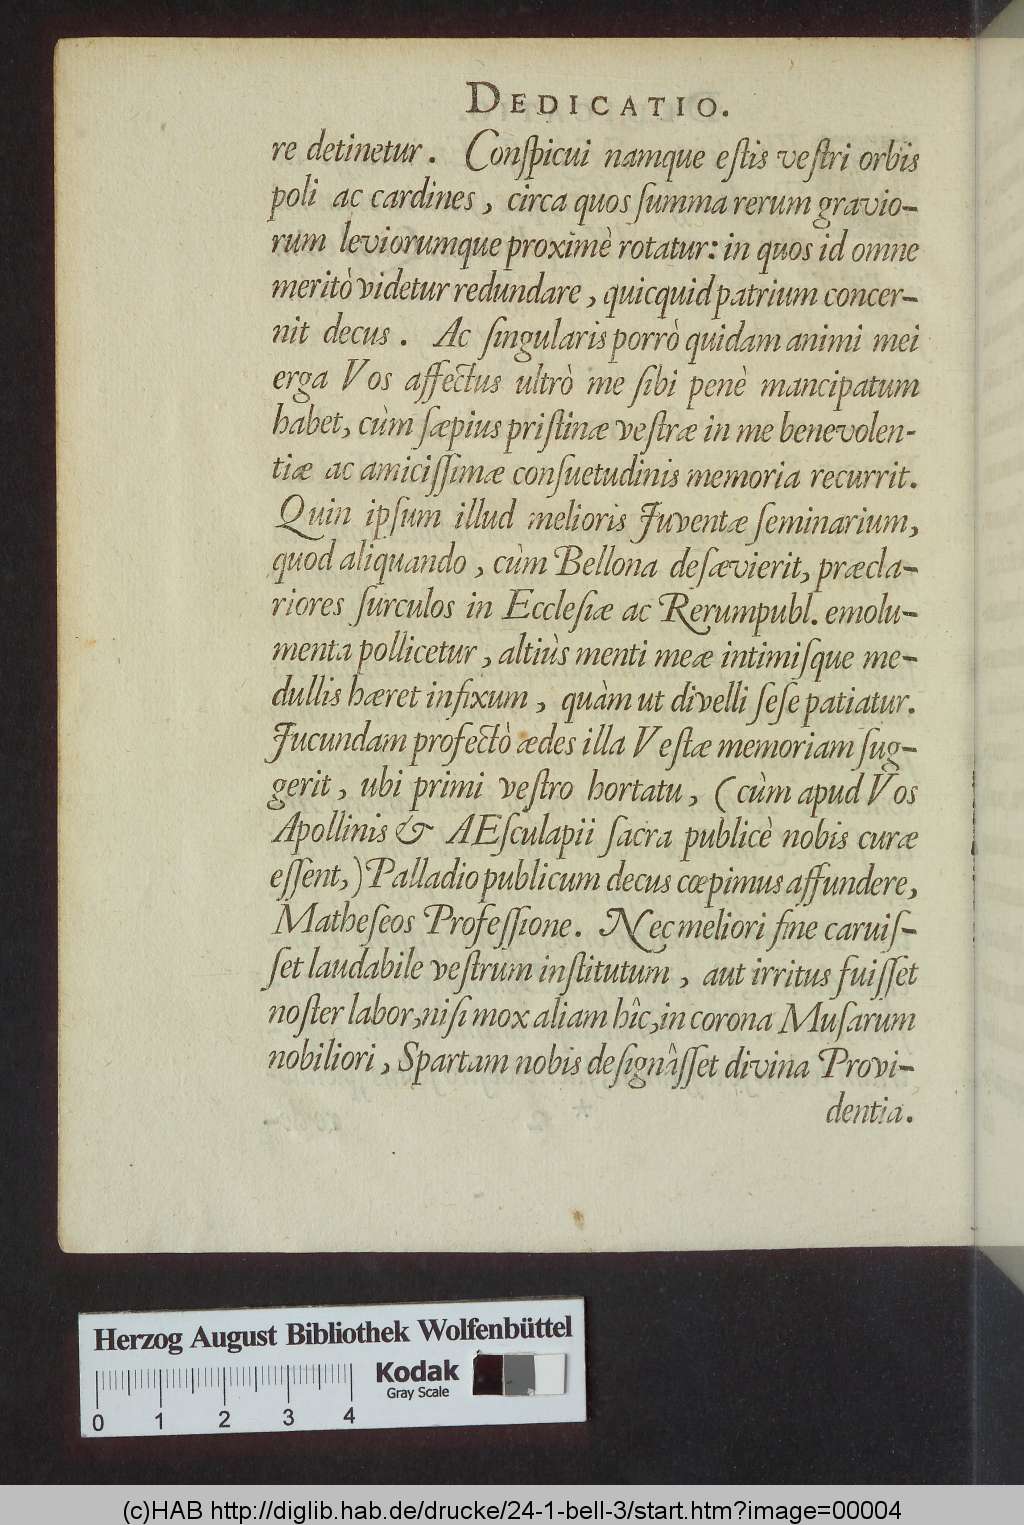 DEDICATIO.
re detinetur. Conſpicui namque eſtis veſtri orbis
poli ac cardines, circa quos ſumma rerum gravio-
rum leviorumque proximè rotatur: in quos id omne
meritò videtur redundare, quicquid patrium concer-
nit decus. Ac ſingularis porrò quidam animi mei
erga Vos affectus ultrò me ſibi penè mancipatum
habet, cùm ſæpius priſtinæ veſtræ in me benevolen-
tiæ ac amiciſſimæ conſuetudinis memoria recurrit.
Quin ipſum illud melioris Juventæ ſeminarium,
quod aliquando, cùm Bellona deſævierit, præcla-
riores ſurculos in Eccleſiæ ac Rerumpubl. emolu-
menta pollicetur, altiùs menti meæ intimiſque me-
dullis hæret infixum, quàm ut divelli ſeſe patiatur.
Jucundam profectò ædes illa Veſtæ memoriam ſug-
gerit, ubi primi veſtro hortatu, (cùm apud Vos
Apollinis & AEſculapii ſacra publicè nobis curæ
eſſent,) Palladio publicum decus cœpimus affundere,
Matheſeos Profeſſione. Nec meliori fine caruiſ-
ſet laudabile veſtrum inſtitutum, aut irritus fuiſſet
noſter labor, niſi mox aliam hîc, in corona Muſarum
nobiliori, Spartam nobis deſignâſſet divina Provi-
dentia.
Herzog August Bibliothek Wolfenbüttel
Kodak
Gray Scale
0 1 2 3 4
(c)HAB http://diglib.hab.de/drucke/24-1-bell-3/start.htm?image=00004